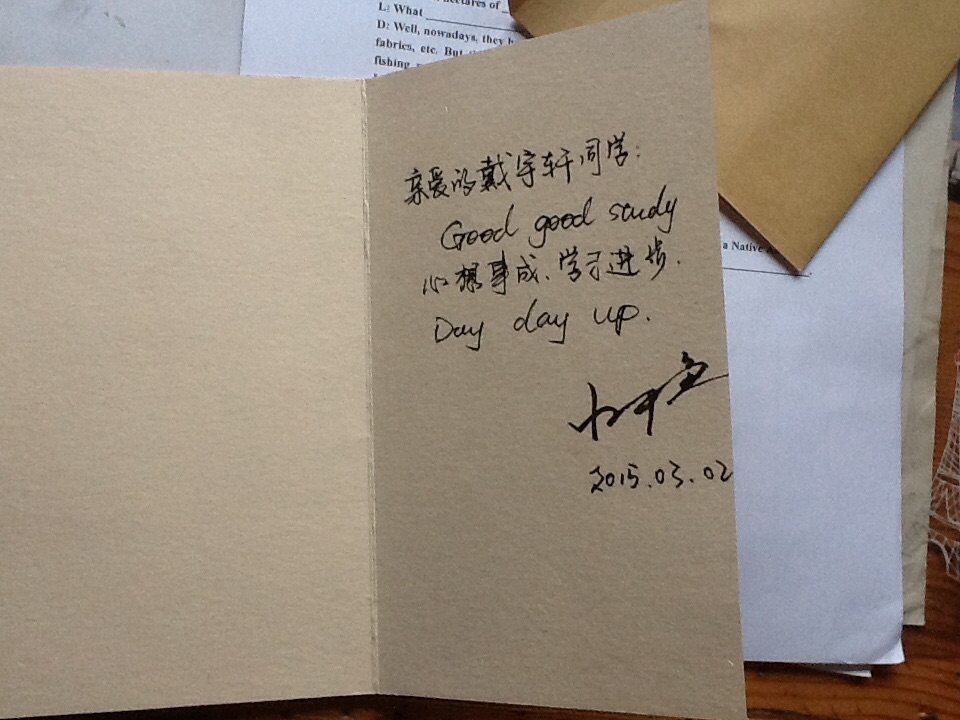 L: What
D: Well, nowadays, they
fabrics, etc. But
fishing
亲爱的戴宇轩同学:
Good good study
心想事成、学习进步.
Day day up.
2015.03.02
a Native